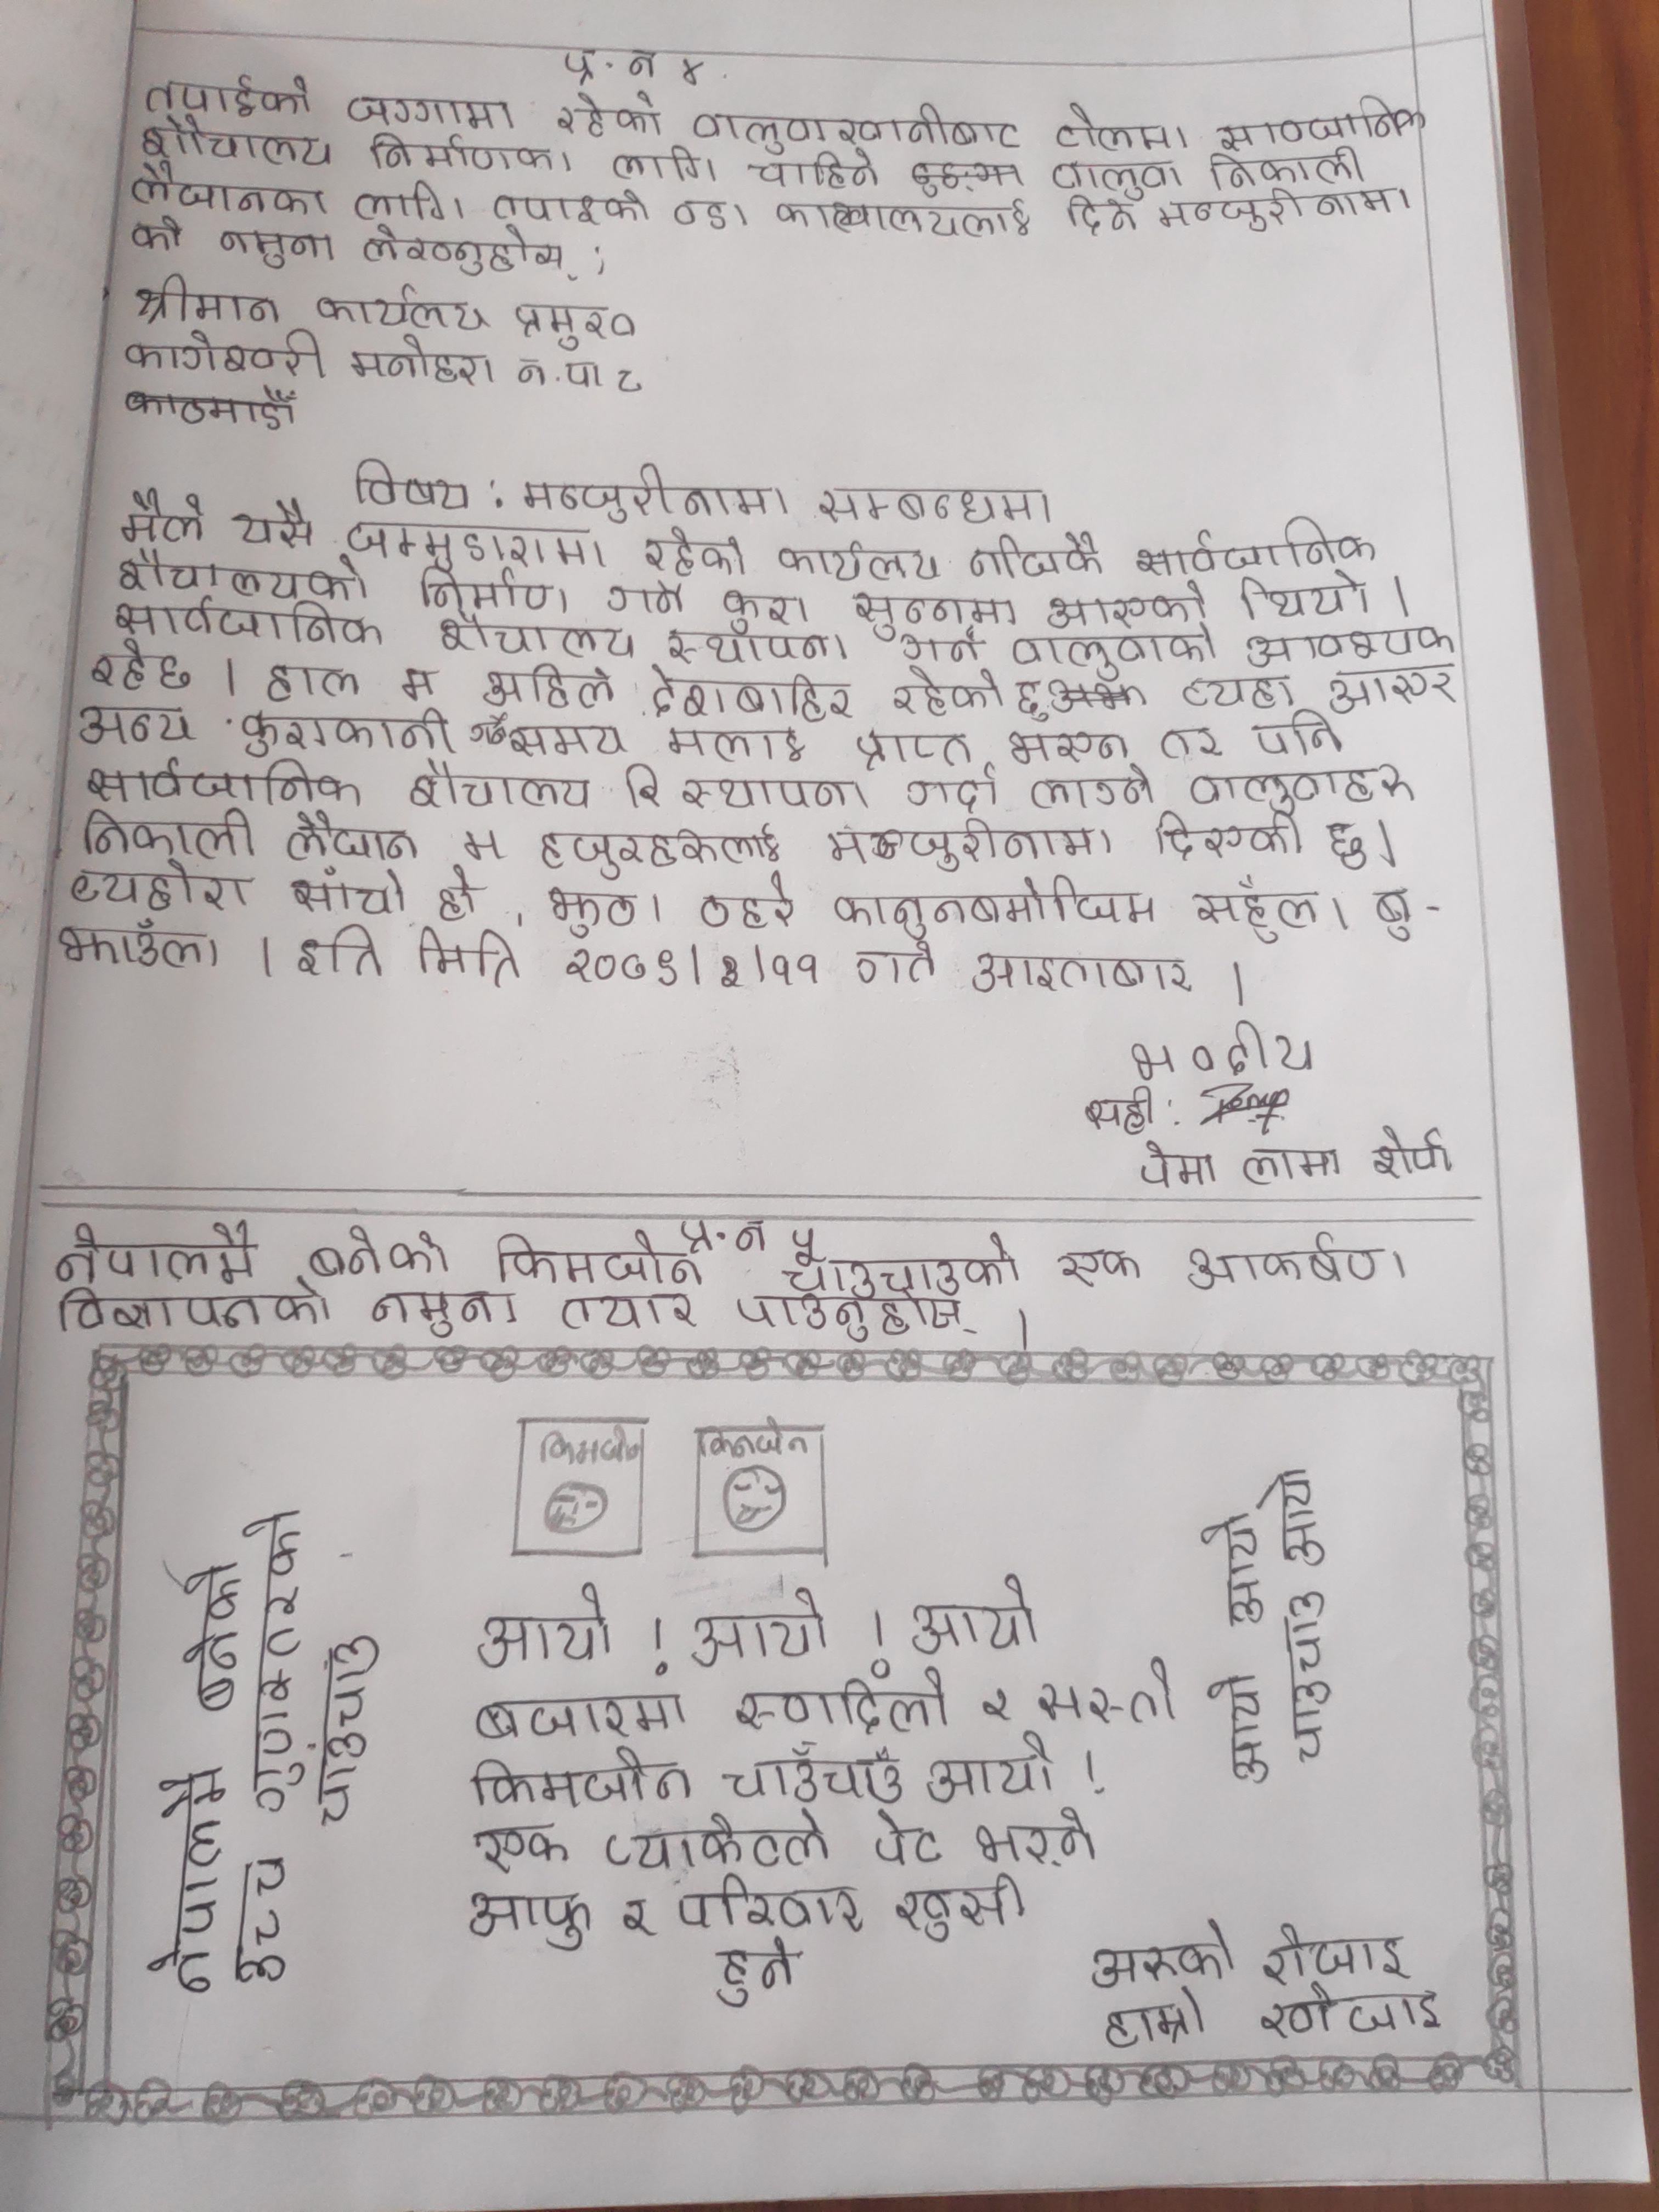 प्र. न ४.
तपाईको जग्गामा रहेको वालुवाखानीबाट टोलमा सावजानिक
शौचालय निर्माणका लागि चाहिने ढुङ्गा वालुवा निकाली
लैजानका लागि तपाइको वडा कार्यालयलाई दिने मञ्जुरीनामा
को नमुना लेख्नुहोस् ;
श्रीमान कार्यलय प्रमुख
कागेश्वरी मनोहरा न.पा ८
काठमाडौँ
विषय : मञ्जुरीनामा सम्बन्धमा
मैले यसै जम्मुडारामा रहेको कार्यलय नजिकै सार्वजानिक
शौचालयको निर्माण गर्ने कुरा सुन्नमा आएको थियो ।
सार्वजानिक शौचालय स्थापना गर्न वालुवाको आवश्यक
रहेछ । हाल म अहिले देशबाहिर रहेको छु त्यहा आएर
अन्य कुराकानी गर्ने समय मलाई प्राप्त भएन तर पनि
सार्वजानिक शौचालय रि स्थापना गर्दा लाग्ने वालुवाहरु
निकाली लैजान म हजुरहरुलाई मञ्जुरीनामा दिएकी छु ।
व्यहोरा साँचो हो , झुठा ठहरे कानुनबमोजिम सहुँला बु-
झाउँला । इति मिति २०७९।३।११ गते आइतबार ।
भवदीय
सही :
पेमा लामा शेर्पा
प्र. न ५
नेपालमै बनेको किमजोन चाउचाउको एक आकर्षण
विज्ञापनको नमुना तयार पाउनुहोस् ।
किमजोन किमजोन
नेपालमै बनेको
उच्च गुणस्तरको
चाउंचाउ
आयो ! आयो ! आयो
बजारमा स्वादिलो र सस्तो
किमजोन चाउँचाउँ आयो !
एक प्याकेटले पेट भर्ने
आफु र परिवार खुसी
हुने
आयो आयो
चाउचाउ आयो
अरुको रोजाइ
हाम्रो खोजाइ